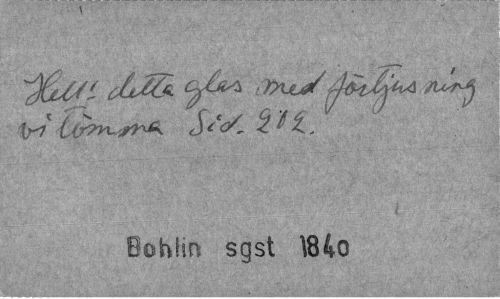 Hell! detta glas med förtjusning
vi tömma Sid. 202.
Bohlin sgst 1840